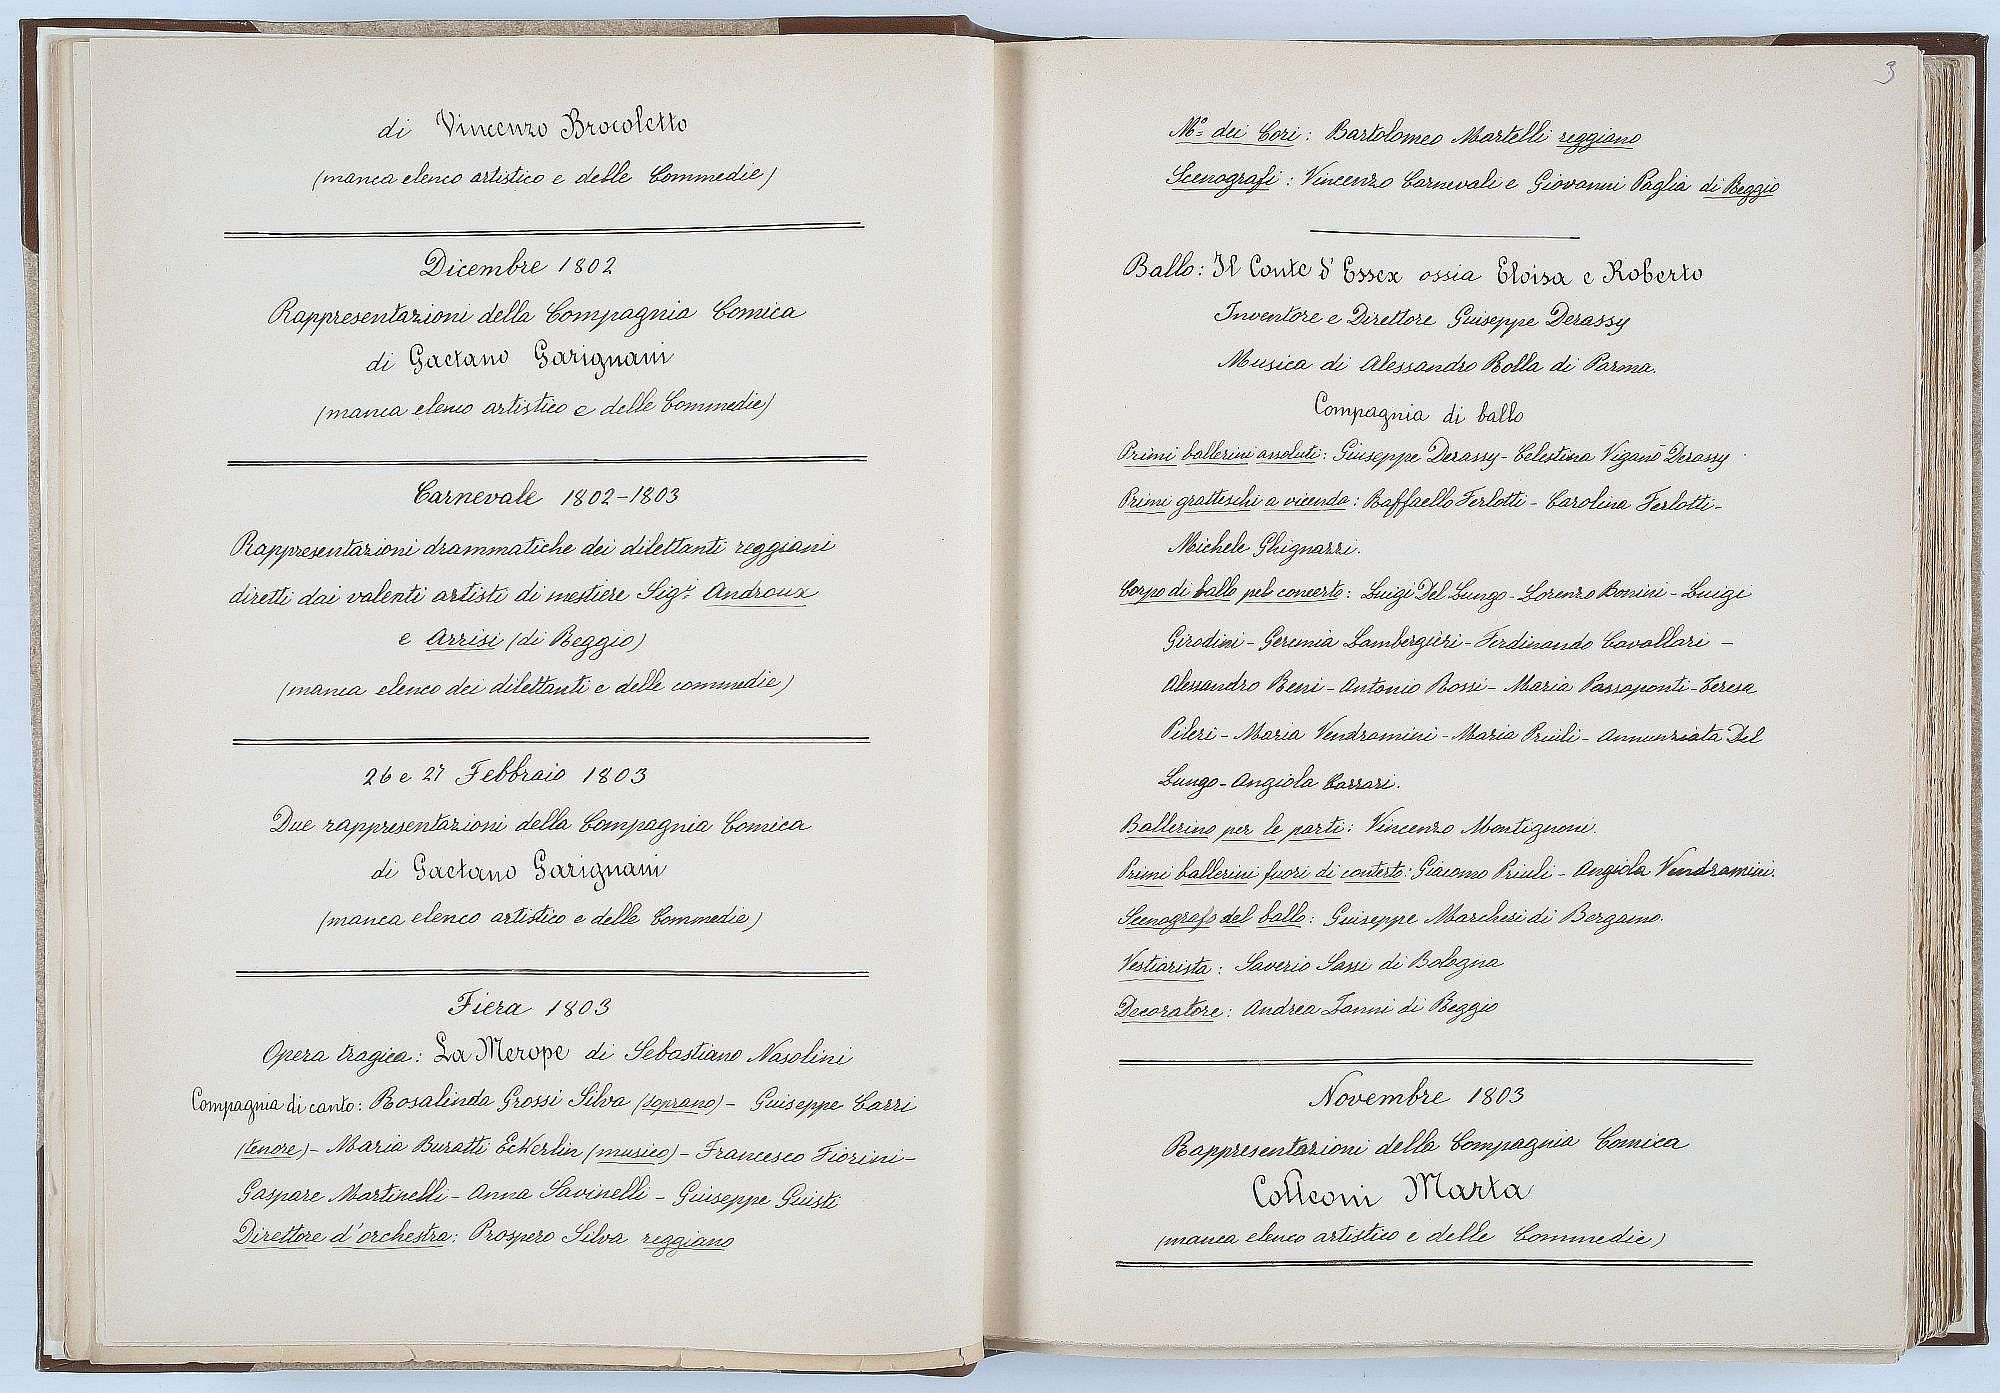 di Vincenzo Brocoletto
(manca elenco artistico e delle Commedie)
Dicembre 1802
Rappresentazioni della Compagnia Comica
di Gaetano Garignani
(manca elenco artistico e delle Commedie)
Carnevale 1802-1803
Rappresentazioni drammatiche dei dilettanti reggiani
diretti dai valenti artisti di mestiere Sigri Androux
e Arrisi (di Reggio)
(manca elenco dei dilettanti e delle commedie)
26 e 27 Febbraio 1803
Due rappresentazioni della Compagnia Comica
di Gaetano Garignani
(manca elenco artistico e delle Commedie)
Fiera 1803
Opera tragica: La Merope di Sebastiano Nasolini
Compagnia di canto: Rosalinda Grossi Silva (soprano) - Giuseppe Carri
(tenore) - Maria Buratti Eckerlin (musico) - Francesco Fiorini -
Gaspare Martinelli - Anna Savinelli - Giuseppe Giusti
Direttore d'orchestra: Prospero Silva reggiano
3
Mo dei Cori: Bartolomeo Martelli reggiano
Scenografi: Vincenzo Carnevali e Giovanni Paglia di Reggio
Ballo: Il Conte d'Essex ossia Eloisa e Roberto
Inventore e Direttore Giuseppe Derassy
Musica di Alessandro Rolla di Parma.
Compagnia di ballo
Primi ballerini assoluti: Giuseppe Derassy - Celestina Viganò Derassy
Primi gratteschi a vicenda: Raffaello Ferlotti - Carolina Ferlotti -
Michele Ghignazzi.
Corpo di ballo pel concerto: Luigi Del Lungo - Lorenzo Bonini - Luigi
Girodini - Geremia Lambergieri - Ferdinando Cavallari -
Alessandro Beni - Antonio Rossi - Maria Passaponti - Teresa
Pileri - Maria Vendramini - Maria Priuli - Annunziata Del
Lungo - Angiola Carrari.
Ballerino per le parti: Vincenzo Montignoni.
Primi ballerini fuori di contesto: Giacomo Priuli - Angiola Vendramini.
Scenografo del ballo: Giuseppe Marchesi di Bergamo.
Vestiarista: Saverio Sassi di Bologna
Decoratore: Andrea Zanni di Reggio
Novembre 1803
Rappresentazioni della Compagnia Comica
Colleoni Marta
(manca elenco artistico e delle Commedie)